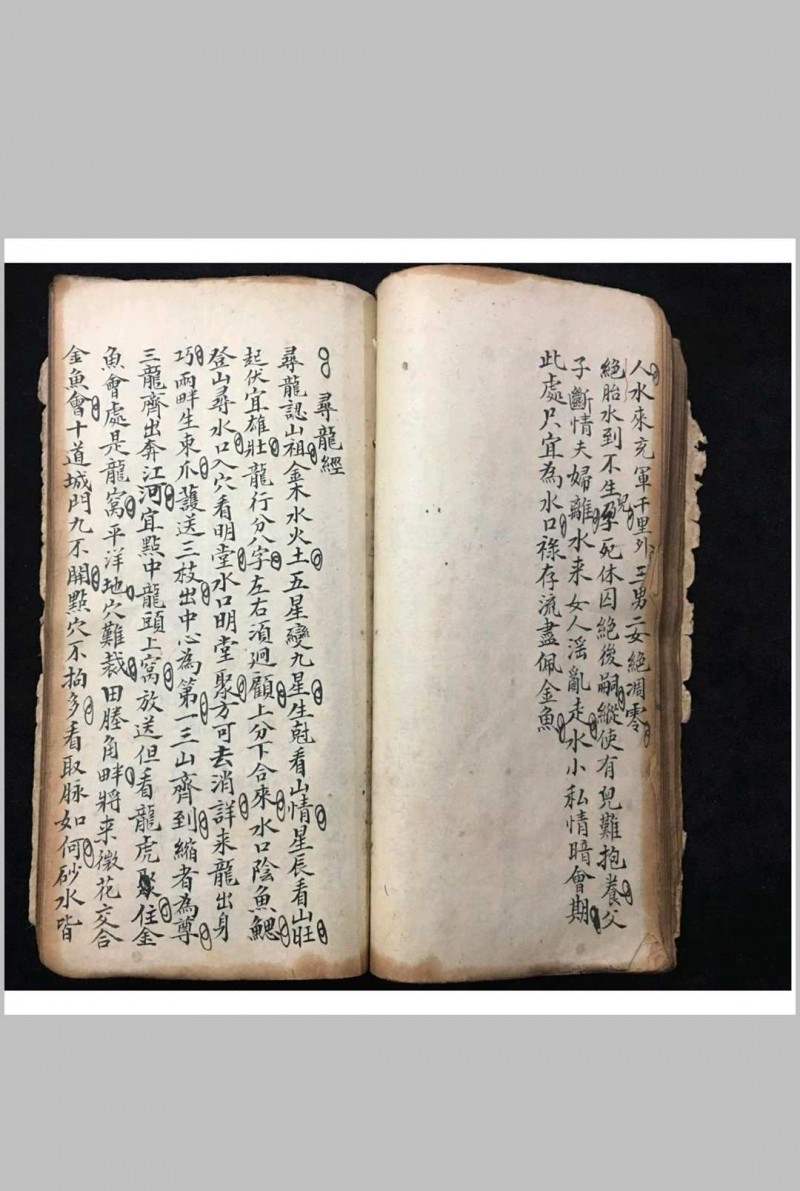 人水來充軍千里外三男二女絕凋零
絕胎水到不生兒孕死休囚絕後嗣縱使有兒難抱養父
子斷情夫婦離水来女人淫亂走水小私情暗會期
此處只宜為水口祿存流盡佩金魚
尋龍經
尋龍認山祖金木水火土五星變九星生尅看山情星辰看山旺
起伏宜雄壯龍行分八字左右須廻顧上分下合來水口陰魚鰓
登山尋水口入穴看明堂水口明堂聚方可去消詳来龍出身
巧兩畔生東爪護送三枝出中心為第一三山齊到縮者為尊
三龍齊出奔江河宜點中龍頭上窩放送但看龍虎聚住金
魚會處是龍窩平洋地穴難裁田塍角畔將来微花交合
金魚會十道城門九不開點穴不拘多看取脉如何砂水皆